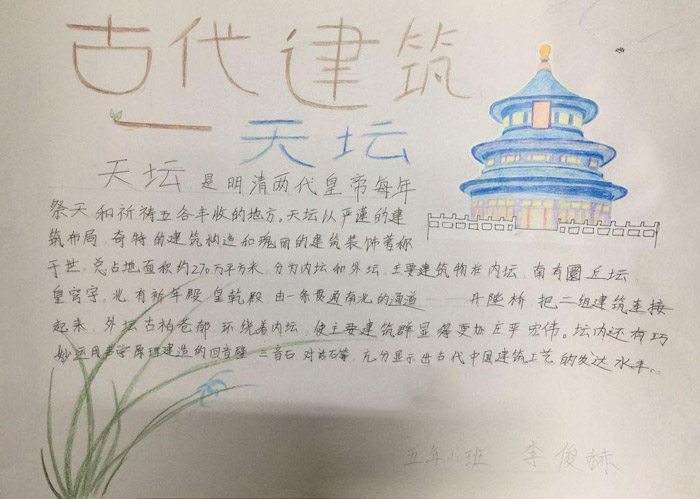 古代建筑
一天坛
天坛是明清两代皇帝每年
祭天和祈祷五谷丰收的地方。天坛以严谨的建
筑布局,奇特的建筑构造和瑰丽的建筑装饰著称
于世。总占地面积约270万平方米,分为内坛和外坛,主要建筑物在内坛,南有圜丘坛
皇穹宇,北有祈年殿 皇乾殿 由一条贯通南北的通道——丹陛桥,把二组建筑连接
起来,外坛古柏苍郁 环绕着内坛,使主要建筑群显得更加庄严宏伟。坛内还有巧
妙运用声学原理建造的回音壁 三音石 对话石等,充分显示出古代中国建筑工艺的发达水平。
五年 班 李俊